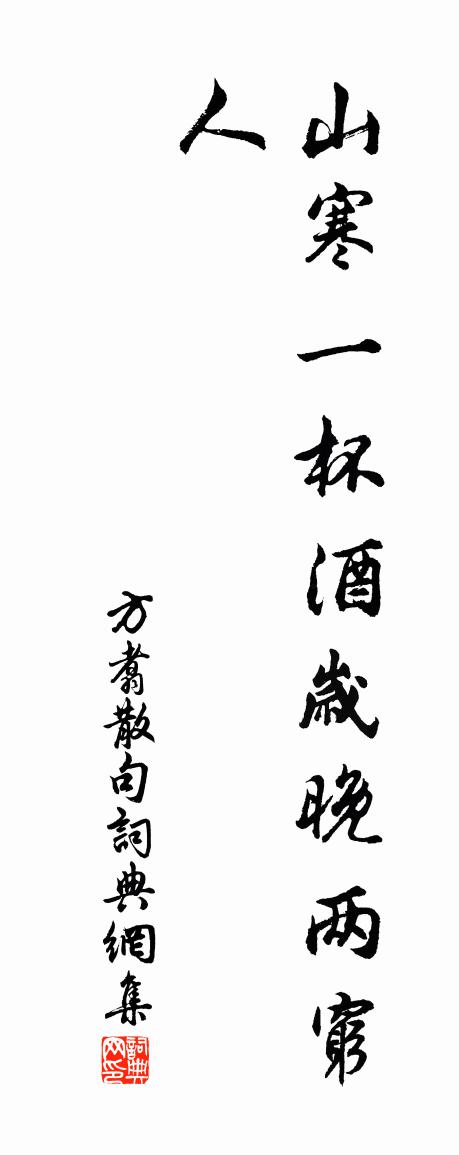 山寒一杯酒歲晚两窮
人
方翥散句詞典網集
詞典
网印